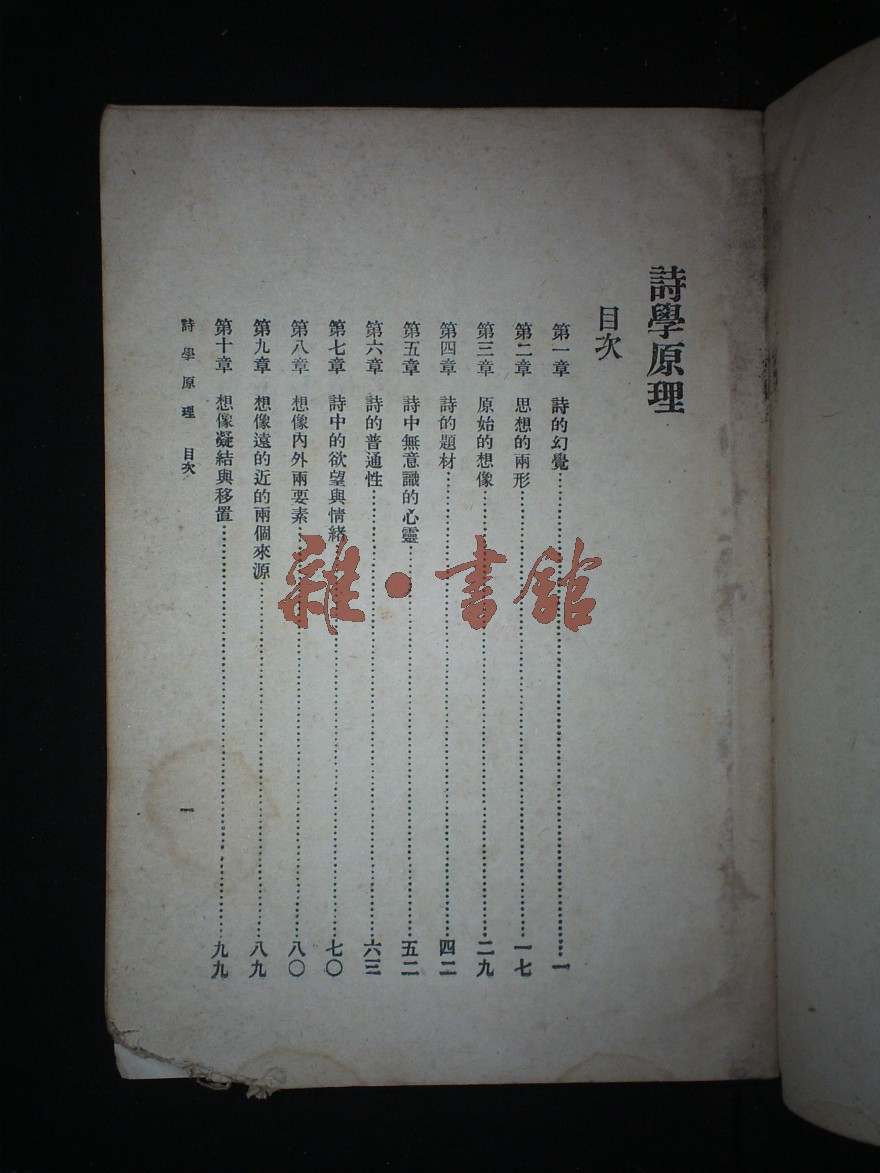 詩學原理
目次
第一章 詩的幻覺……一
第二章 思想的兩形……一七
第三章 原始的想像……二九
第四章 詩的題材……四二
第五章 詩中無意識的心靈……五二
第六章 詩的普通性……六三
第七章 詩中的欲望與情緒……七〇
第八章 想像內外兩要素……八〇
第九章 想像遠的近的兩個來源……八九
第十章 想像凝結與移置……九九
詩學原理 目次
一
雜·書館